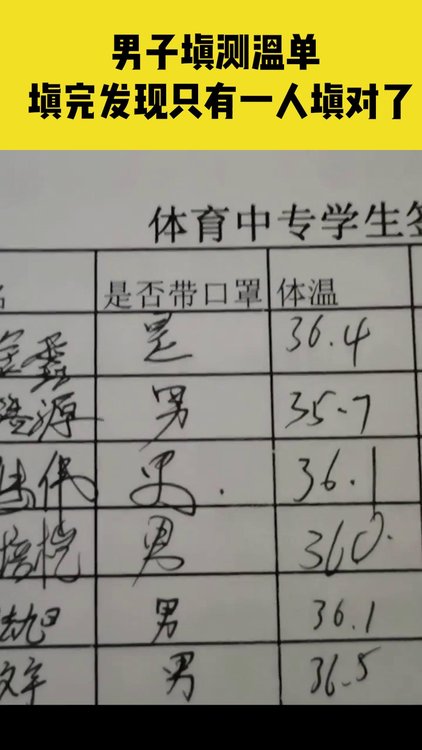 男子填测溫单
填完发现只有一人填对了
体育中专学生签
名 是否带口罩 体温
是 36.4
源 男 35.7
男. 36.1
男 360.
男 36.1
男 36.5